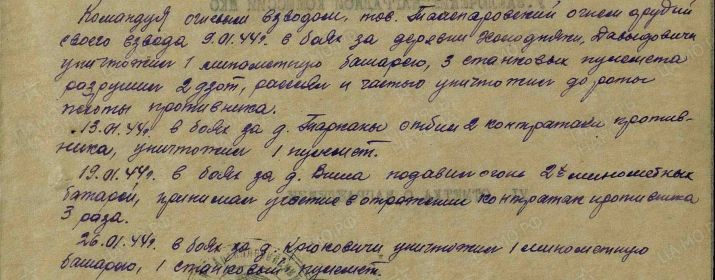 Командуя огневым взводом, тов. Таспаровский огнем орудий
своего взвода 9.01.44г. в боях за деревни Холодники, Давыдовичи
уничтожил 1 минометную батарею, 3 станковых пулемета
разрушил 2 дзот, рассеял и частью уничтожил до роты
пехоты противника.
13.01.44г. в боях за д. Тарканы отбил 2 контратаки против-
ника, уничтожил 1 пулемет.
19.01.44г. в боях за д. Виша подавил огонь 2х минометных
батарей, принимал участие в отражении контратак противника
3 раза.
26.01.44г. в боях за д. Крюковичи уничтожил 1 минометную
батарею, 1 станковый пулемет.